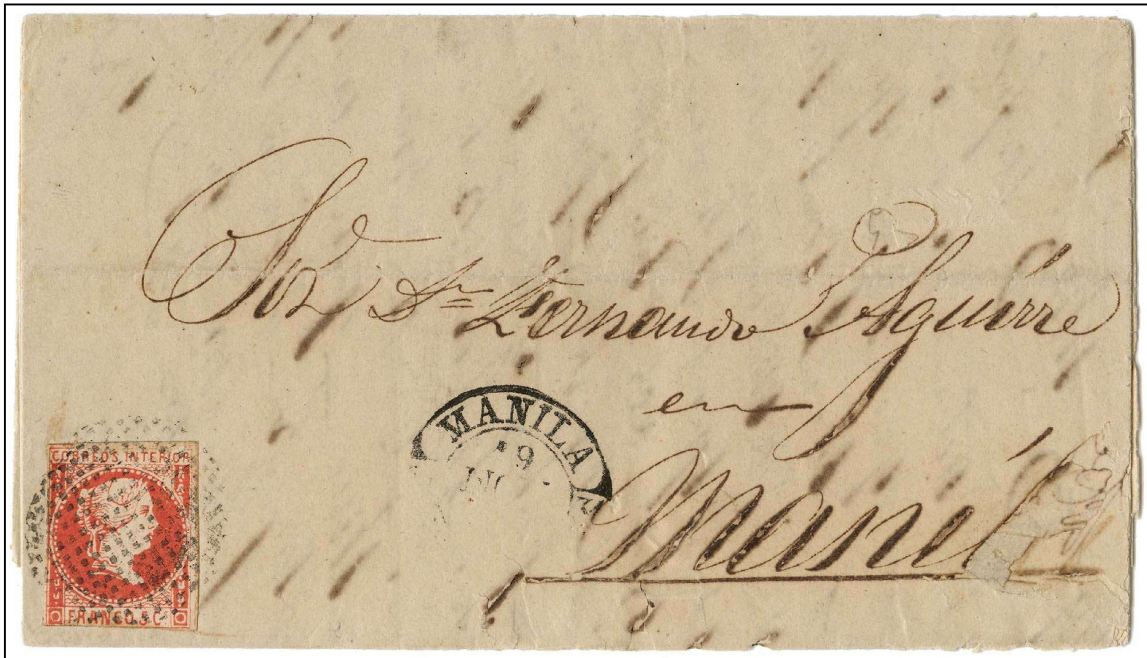 Sor Dn Fernando Aguirre
en
Manil
MANILA
19
NO
CORREOS INTERIOR
FRANCO. 5. C